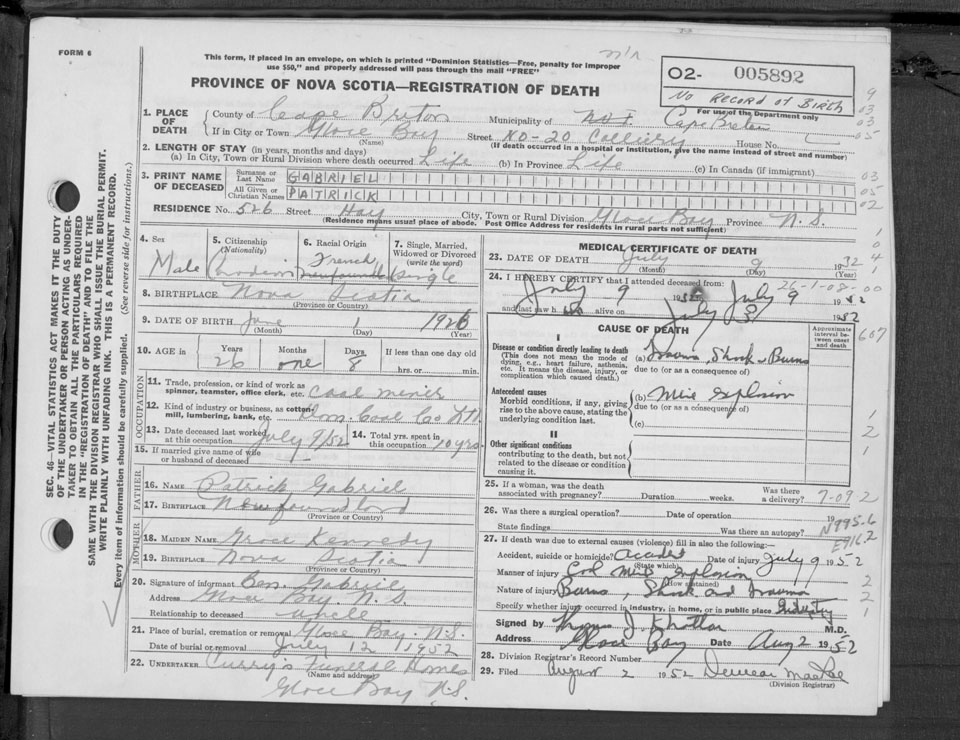 FORM 6
This form, if placed in an envelope, on which is printed "Dominion Statistics—Free, penalty for improper
use $50," and properly addressed will pass through the mail "FREE"
PROVINCE OF NOVA SCOTIA—REGISTRATION OF DEATH
02- 005892
No RECORD OF BIRTH
For use of the Department only
1. PLACE OF DEATH
County of Cape Breton Municipality of Cape Breton
If in City or Town Glace Bay Street NO-20 Colliery House No.
(Name) (If death occurred in a hospital or institution, give the name instead of street and number)
2. LENGTH OF STAY (in years, months and days)
(a) In City, Town or Rural Division where death occurred Life (b) In Province Life (c) In Canada (if immigrant)
3. PRINT NAME OF DECEASED
Surname or Last Name GABRIEL
All Given or Christian Names PATRICK
RESIDENCE No. 526 Street Hay City, Town or Rural Division Glace Bay Province N.S.
(Residence means usual place of abode. Post Office Address for residents in rural parts not sufficient)
4. Sex Male
5. Citizenship (Nationality) Canadian
6. Racial Origin French
7. Single, Married, Widowed or Divorced (write the word) Single
8. BIRTHPLACE Nova Scotia
(Province or Country)
9. DATE OF BIRTH June 1 1926
(Month) (Day) (Year)
10. AGE in Years 26 Months one Days 8 If less than one day old
hrs. or min.
OCCUPATION
11. Trade, profession, or kind of work as
spinner, teamster, office clerk, etc. Coal miner
12. Kind of industry or business, as cotton
mill, lumbering, bank, etc. Dom. Coal Co Ltd.
13. Date deceased last worked
at this occupation July 9/52
14. Total yrs. spent in
this occupation 10 yrs.
15. If married give name of wife
or husband of deceased
FATHER
16. NAME Patrick Gabriel
17. BIRTHPLACE Newfoundland
(Province or Country)
MOTHER
18. MAIDEN NAME Grace Kennedy
19. BIRTHPLACE Nova Scotia
(Province or Country)
20. Signature of informant Ben. Gabriel
Address Glace Bay. N.S.
Relationship to deceased uncle
21. Place of burial, cremation or removal Glace Bay. N.S.
Date of burial or removal July 12 1952
22. UNDERTAKER Curry's Funeral Homes
(Name and address)
Glace Bay N.S.
MEDICAL CERTIFICATE OF DEATH
23. DATE OF DEATH July 9 1952
(Month) (Day) (Year)
24. I HEREBY CERTIFY that I attended deceased from:
26-1-08-00
July 9 1952 July 9 1952
and last saw h alive on July 8 1952
CAUSE OF DEATH
Approximate interval between onset and death
I
Disease or condition directly leading to death
(This does not mean the mode of dying, e.g., heart failure, asthenia, etc. It means the disease, injury, or complication which caused death.)
(a) Trauma, Shock & Burns
due to (or as a consequence of)
Antecedent causes
Morbid conditions, if any, giving rise to the above cause, stating the underlying condition last.
(b) Mine Explosion
due to (or as a consequence of)
(c)
II
Other significant conditions
contributing to the death, but not related to the disease or condition causing it.
25. If a woman, was the death
associated with pregnancy? Duration weeks. Was there a delivery?
7-092
26. Was there a surgical operation? Date of operation 19
State findings Was there an autopsy?
N995-6
E916.2
27. If death was due to external causes (violence) fill in also the following:—
Accident, suicide or homicide? Accident Date of injury July 9 1952
(State which)
Manner of injury Coal Mine explosion
(How sustained)
Nature of injury Burns, Shock and trauma
Specify whether injury occurred in industry, in home, or in public place Industry
Signed by Thomas J. M.D.
Address Glace Bay Date Aug 2 1952
28. Division Registrar's Record Number
29. Filed August 2 1952 Duncan
(Division Registrar)
SEC. 46—VITAL STATISTICS ACT MAKES IT THE DUTY
OF THE UNDERTAKER OR PERSON ACTING AS UNDER-
TAKER TO OBTAIN ALL THE PARTICULARS REQUIRED
IN THE "REGISTRATION OF DEATH" AND TO FILE THE
SAME WITH THE DIVISION REGISTRAR WHO SHALL ISSUE THE BURIAL PERMIT.
WRITE PLAINLY WITH UNFADING INK. THIS IS A PERMANENT RECORD.
Every item of information should be carefully supplied. (See reverse side for instructions.)